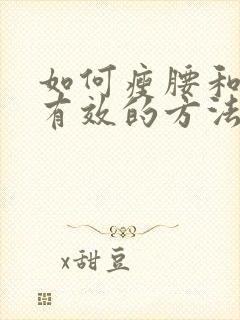 如何瘦腰和
有效的方法
x甜豆